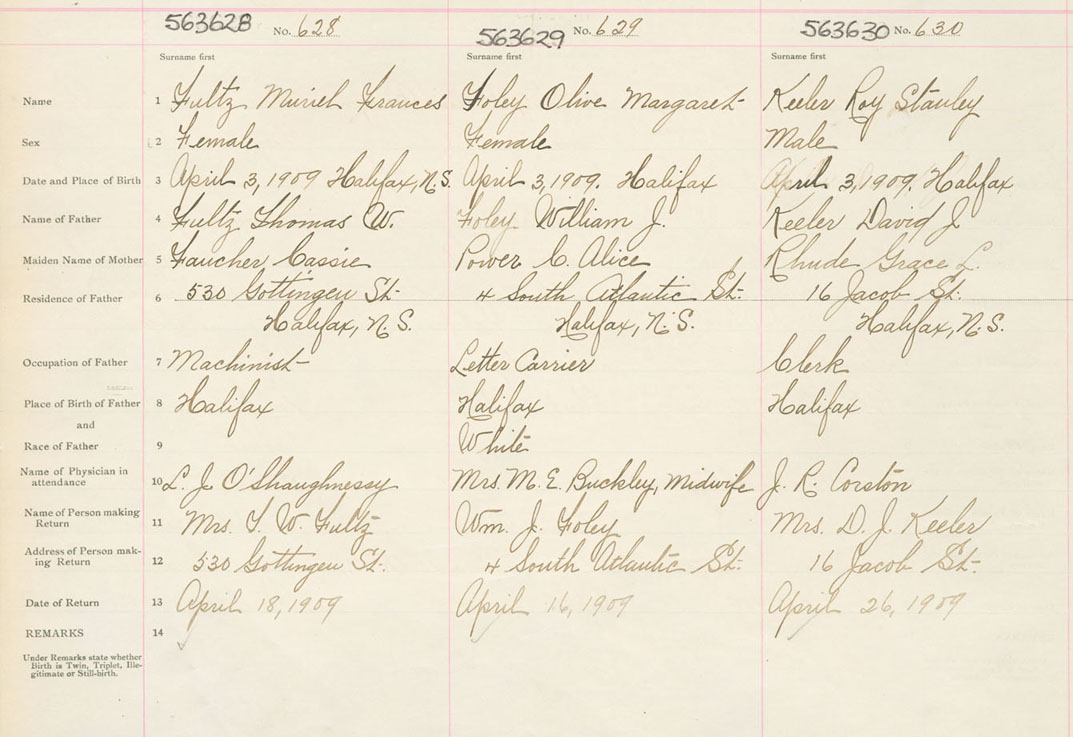 563628 No. 628 563629 No. 629 563630 No. 630
Surname first Surname first Surname first
Name 1 Fultz Muriel Frances Foley Olive Margaret Keeler Roy Stanley
Sex 2 Female Female Male
Date and Place of Birth 3 April 3, 1909 Halifax, N.S. April 3, 1909. Halifax April 3, 1909. Halifax
Name of Father 4 Fultz Thomas W. Foley William J. Keeler David J
Maiden Name of Mother 5 Faucher Cassie Power C. Alice Rhude Grace L.
Residence of Father 6 530 Gottingen St. 4 South Atlantic St. 16 Jacob St.
Halifax, N.S. Halifax, N.S. Halifax, N.S.
Occupation of Father 7 Machinist Letter Carrier Clerk
Place of Birth of Father 8 Halifax Halifax Halifax
and
Race of Father 9 White
Name of Physician in
attendance 10 L. J. O'Shaughnessy Mrs. M. E. Buckley, Midwife J. R. Corston
Name of Person making
Return 11 Mrs. T. W. Fultz Wm. J. Foley Mrs. D. J. Keeler
Address of Person mak-
ing Return 12 530 Gottingen St. 4 South Atlantic St. 16 Jacob St.
Date of Return 13 April 18, 1909 April 16, 1909 April 26, 1909
REMARKS 14
Under Remarks state whether
Birth is Twin, Triplet, Ille-
gitimate or Still-birth.